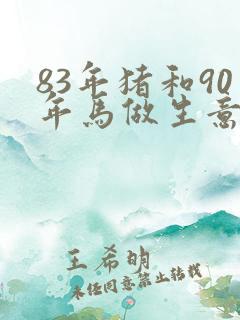 83年猪和90
年马做生意
王希明
未经同意禁止转载